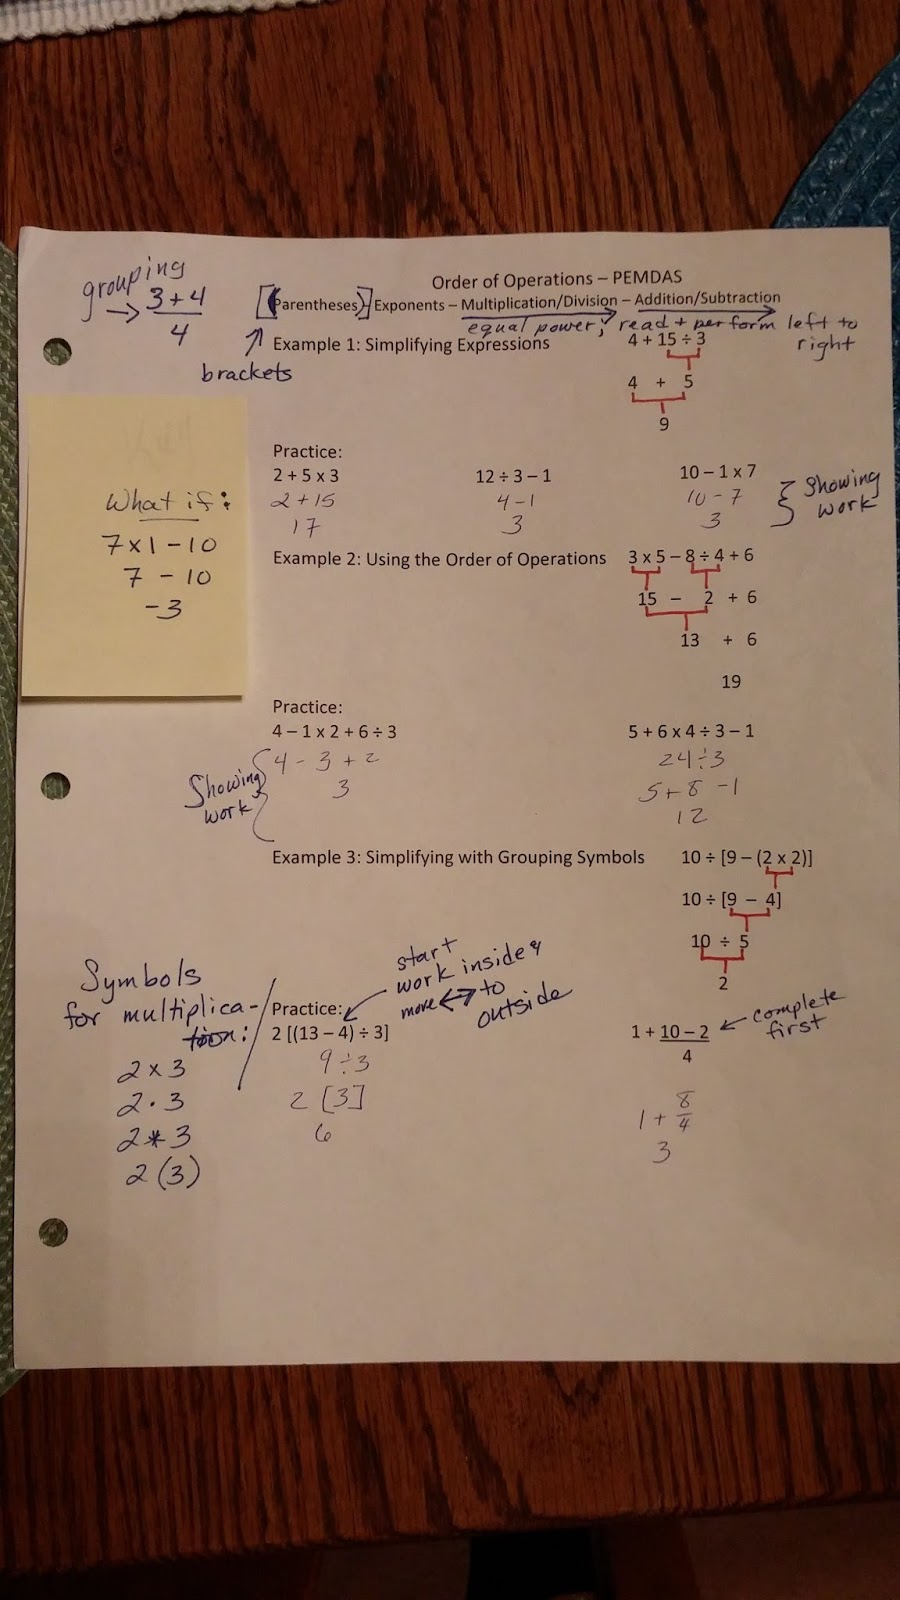 grouping
→ 3 + 4
4
Order of Operations – PEMDAS
[(Parentheses)] – Exponents – Multiplication/Division – Addition/Subtraction
equal power; read + perform left to
right
brackets
Example 1: Simplifying Expressions
4 + 15 ÷ 3
4 + 5
9
Practice:
2 + 5 x 3
2 + 15
17
12 ÷ 3 – 1
4 - 1
3
10 – 1 x 7
10 - 7
3
Showing
work
What if:
7 x 1 - 10
7 - 10
-3
Example 2: Using the Order of Operations
3 x 5 – 8 ÷ 4 + 6
15 – 2 + 6
13 + 6
19
Practice:
4 – 1 x 2 + 6 ÷ 3
4 - 3 + 2
3
Showing
work
5 + 6 x 4 ÷ 3 – 1
24 ÷ 3
5 + 8 - 1
12
Example 3: Simplifying with Grouping Symbols
10 ÷ [9 – (2 x 2)]
10 ÷ [9 – 4]
10 ÷ 5
2
Symbols
for multiplica-
tion:
2 x 3
2 · 3
2 * 3
2 (3)
start
work inside &
move ↔ to
outside
Practice:
2 [(13 – 4) ÷ 3]
9 ÷ 3
2 [3]
6
1 + 10 – 2
4
← complete
first
1 + 8
4
3